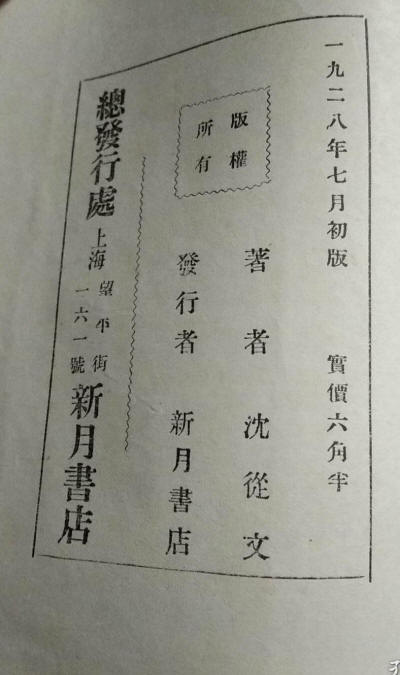 一九二八年七月初版　實價六角半
版權
所有
著者　沈從文
發行者　新月書店
總發行處　上海望平街一六一號　新月書店